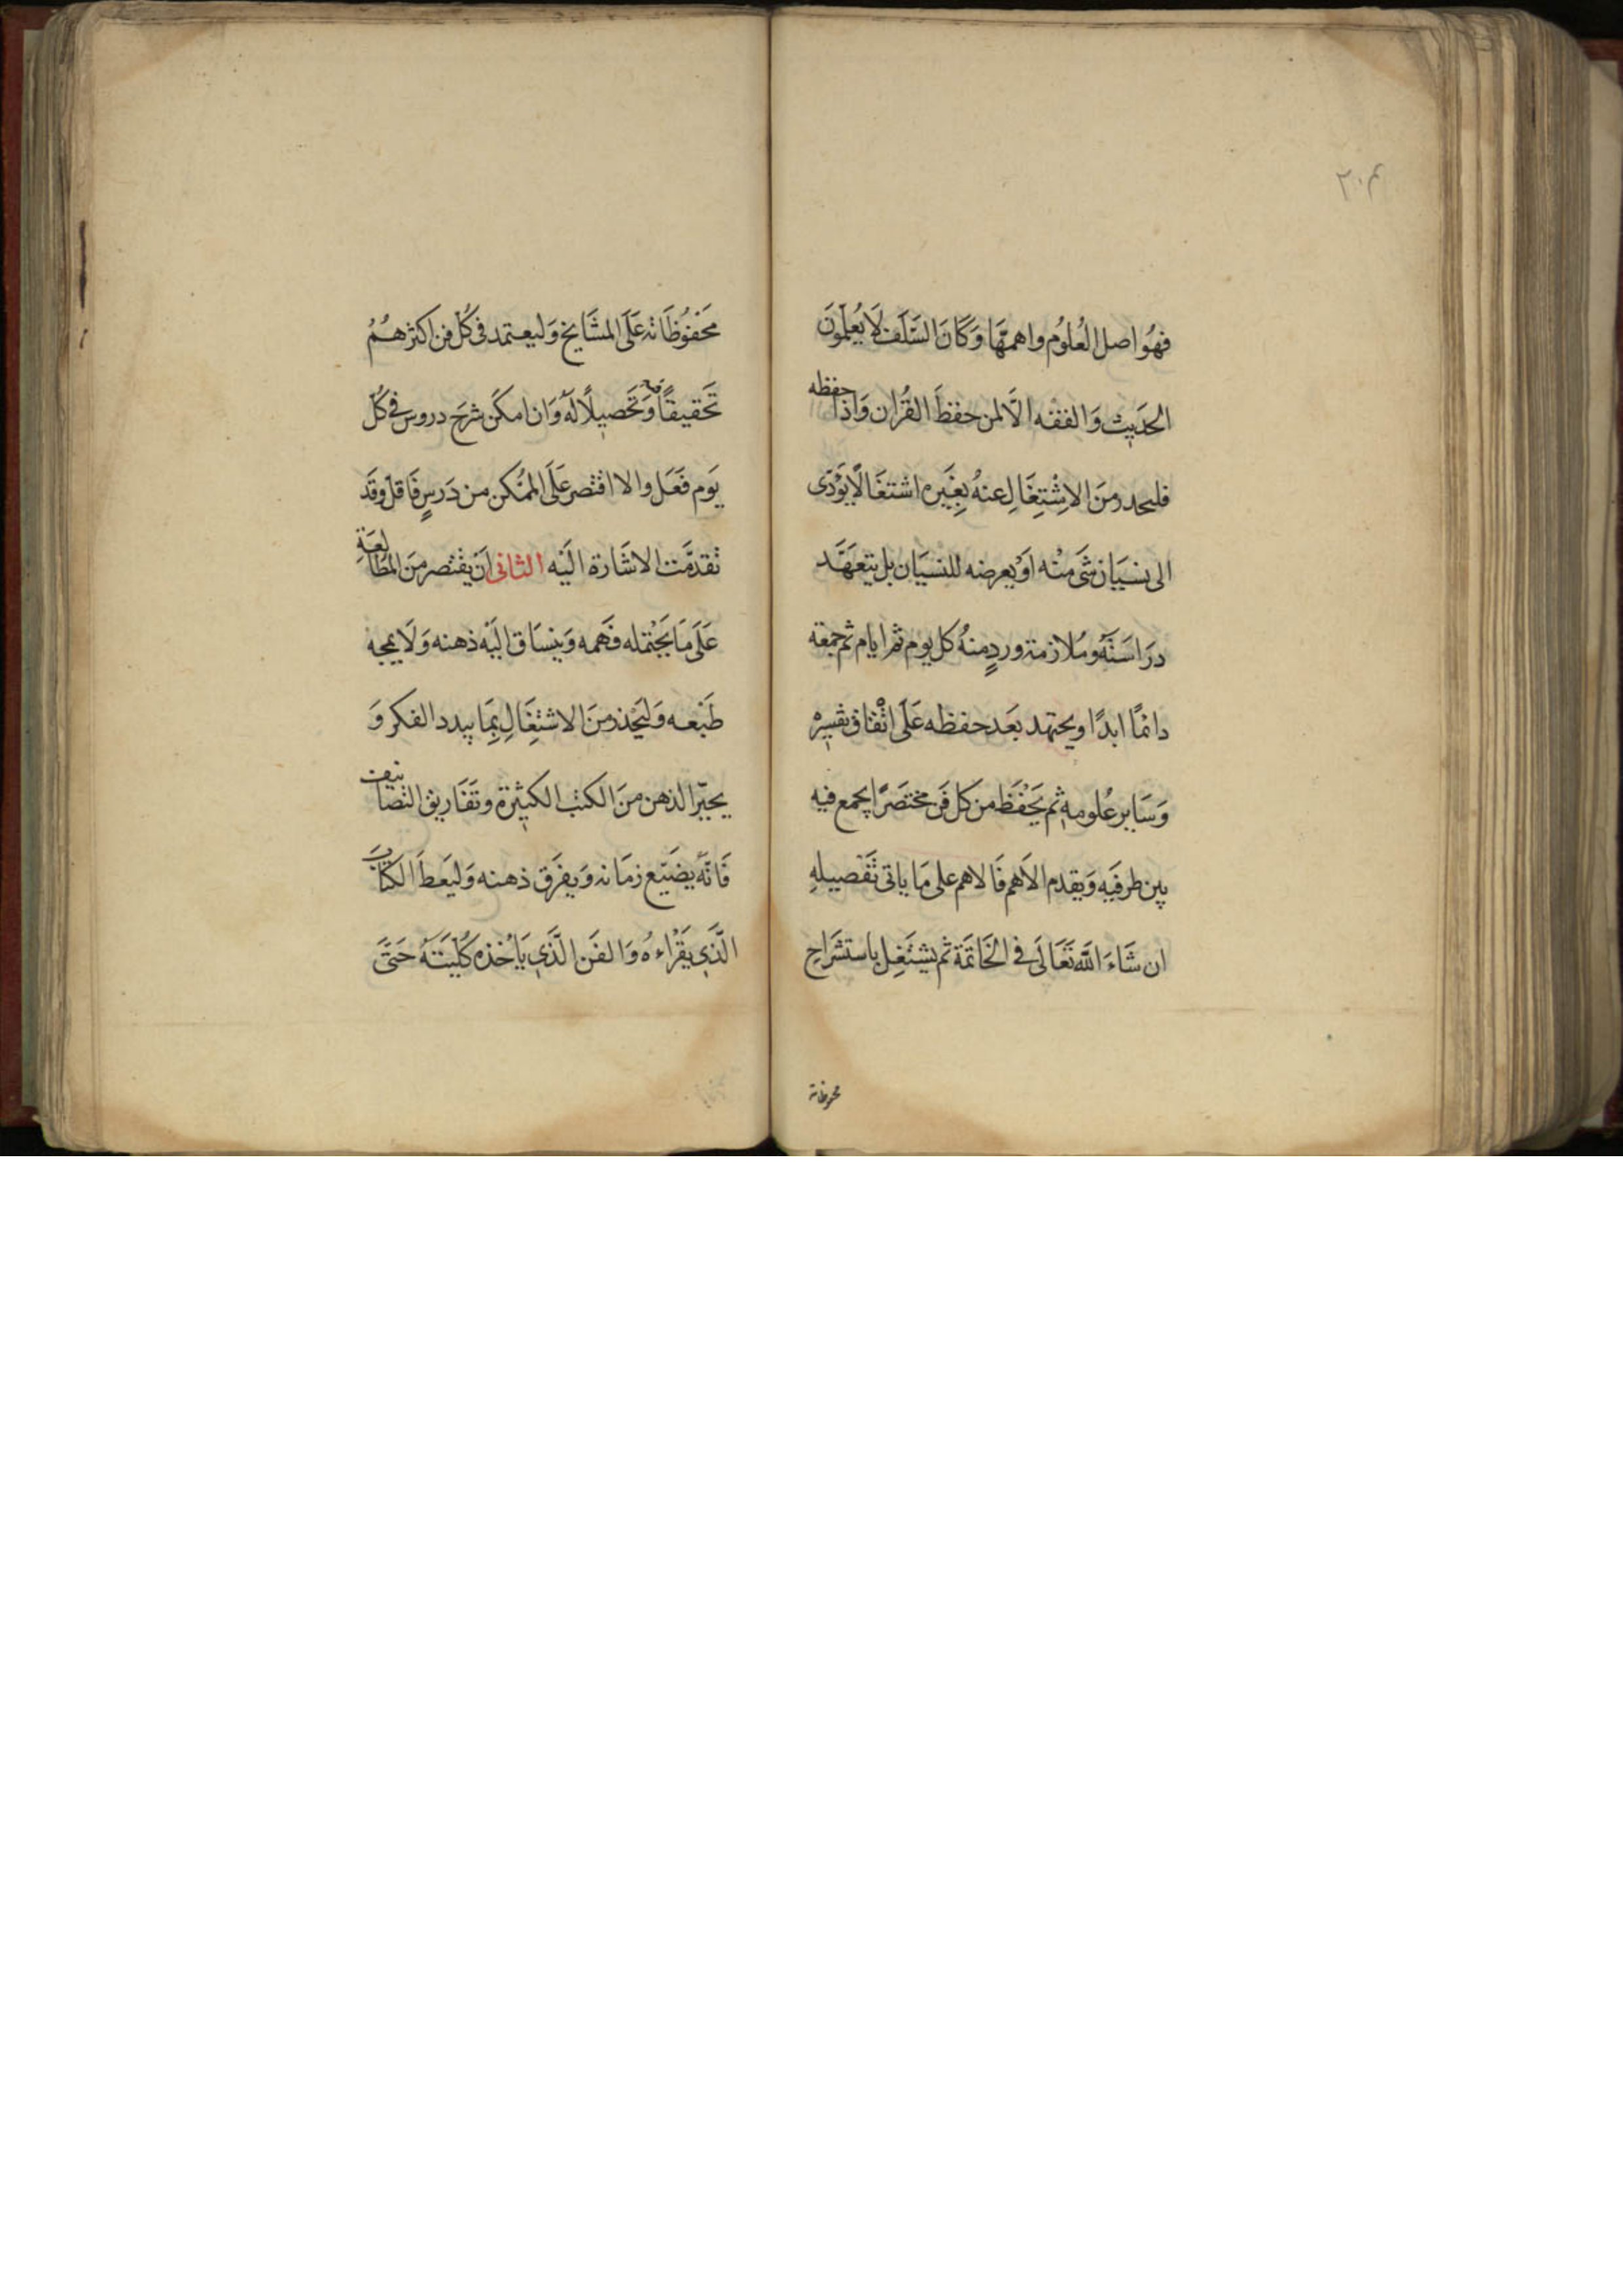 ٢٠٣
فهُو اصل العُلوُم واهمهَّا وَكَانَ السَّلَف لَا يُعلّموُنَ
الحَديث وَالفقه الّا لمن حفظَ القُران وَاذا حفظه
فليحذر منَ الاِشْتِغَالِ عنهُ بِغَيره اشتغَالًا يؤَدّى
الى نسيَان شَئ منْه اَوْ يعرضه للنسيَان بل يتعهَّد
درَاسَتَهُ وَمُلازمة وردٍ منهُ كل يوم ثم ايام ثم جمعة
دائمًا ابدًا ويجتهد بعَد حفظه عَلَى اتْقان تفسيره
وَسَاير عُلومه ثم يَحْفَظ من كل فَن مختصَرًا يجمع فيه
بين طرفيَه وَيقدم الاَهم فَالاهم على مَا ياتى تَفْصيله
ان شَاءَ اللَّه تَعَالَى فى الخَاتمَة ثم يشتَغِل باستشَراح
محفوظاته
مَحْفوُظَاته عَلَى المشَايخ وَليعتمد فى كُل فن اكثرهُمُ
تَحقيقًا فيه وَتَحصيلًا لهُ وَان امكَن شرحَ دروس فى كُل
يَوم فَعَل والا اقتصر عَلَى الممكن من دَرسٍ فَاقل وقَد
تقدمَّت الاشَارة اليَه الثانى اَنْ يقتصر منَ المطَالعَةِ
عَلَى مَا يَحْتمله فَهمه وَينسَاق اليَه ذهنه وَلَا يمجه
طَبْعه وَليَحْذر منَ الاشتِغَالِ بِمَا يبدد الفكر وَ
يحيرّ الذهن منَ الكتب الكثيرَة وتَفَاريق التصَانيف
فَانّهُ يضَيّع زمَانه وَيفرَق ذهنه وَليَعط الكتَابَ
الّذَى يَقْراءهُ وَالفَن الّذَى يَأخذه كُلّيَتَهُ حَتَّى